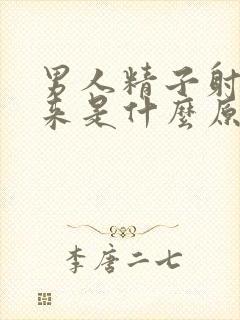 男人精子射
来是什麼原
李唐二七